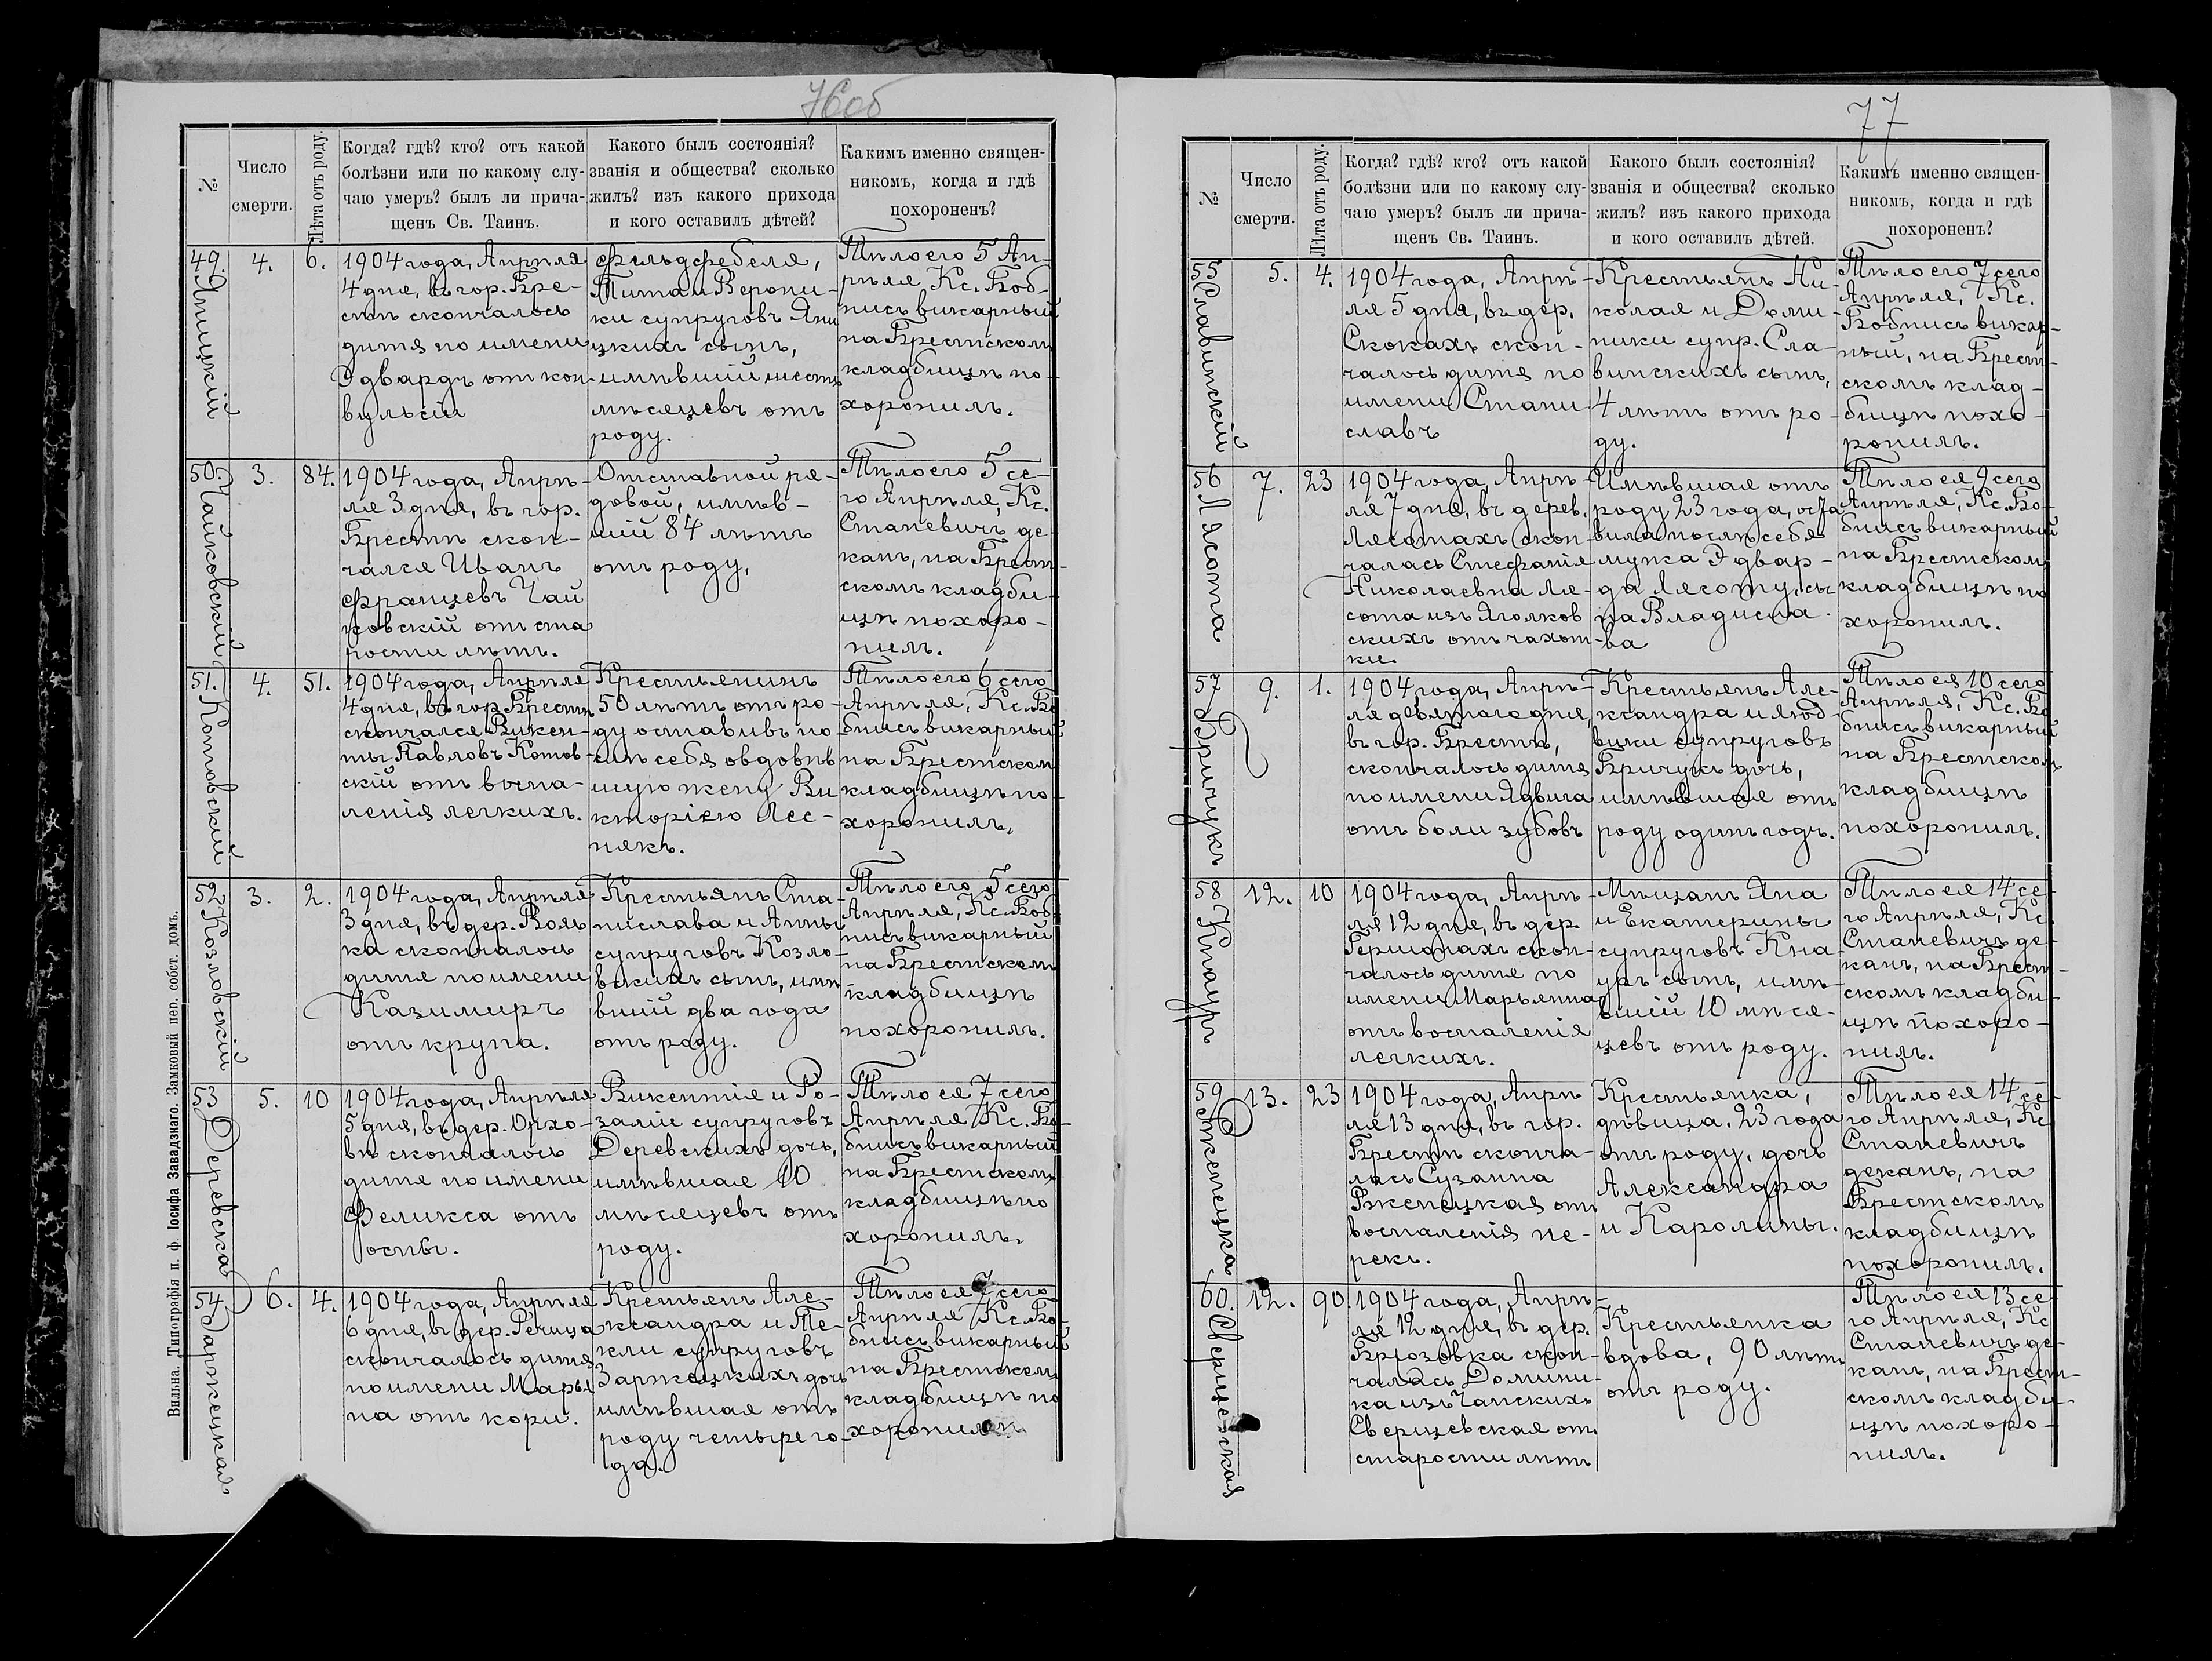 76об
№
Число
смерти.
Лѣта отъ роду.
Когда? гдѣ? кто? отъ какой
болѣзни или по какому слу-
чаю умеръ? былъ ли прича-
щенъ Св. Таинъ.
Какого былъ состоянія?
званія и общества? сколько
жилъ? изъ какого прихода
и кого оставилъ дѣтей?
Какимъ именно священ-
никомъ, когда и гдѣ
похороненъ?
49.
Яницкій
4.
6.
1904 года, Апрѣля
4 дня, въ гор. Бре-
стѣ скончалось
дитя по имени
Эдвардъ отъ кон-
вульсіи
Фельдфебеля,
Тита и Верони-
ки супруговъ Яни
цкихъ сынъ,
имѣвшій шесть
мѣсяцевъ отъ
роду.
Тѣло его 5 Ап-
рѣля, Кс. Боб-
нисъ викарный
на Брестскомъ
кладбищѣ по-
хоронилъ.
50.
Чайковскій
3.
84.
1904 года, Апрѣ-
ля 3 дня, въ гор.
Брестѣ скон-
чался Иванъ
Францевъ Чай
ковскій отъ ста
рости лѣтъ.
Отставной ря-
довой, имѣв-
шій 84 лѣтъ
отъ роду,
Тѣло его 5 се-
го Апрѣля, Кс.
Станевичъ де-
канъ, на Брест-
скомъ кладби-
щѣ похоро-
нилъ.
51.
Котовскій
4.
51.
1904 года, Апрѣля
4 дня, въ гор. Брестѣ
скончался Викен-
ты Павловъ Котов-
скій отъ воспа-
ленія легкихъ.
Крестьянинъ
50 лѣтъ отъ ро-
ду оставивъ по-
слѣ себя овдовѣв
шую жену Ви
кторію Лес-
някъ.
Тѣло его 6 сего
Апрѣля, Кс. Бо
бнисъ викарный
на Брестском
кладбищѣ по-
хоронилъ.
52
Козловскій
3.
2.
1904 года, Апрѣля
3 дня, въ дер. Воль
ка скончалось
дитя по имени
Казимиръ
отъ крупа.
Крестьянъ Ста-
нислава и Анны
супруговъ Козло-
вскихъ сынъ, имѣ
вшій два года
отъ роду.
Тѣло его 5 сего
Апрѣля, Кс. Боб
нисъ викарный
на Брестскомъ
кладбищѣ
похоронилъ.
53
Деревская
5.
10
1904 года, Апрѣля
5 дня, въ дер. Орхо-
вѣ скончалось
дитя по имени
Феликса отъ
оспы.
Викентія и Ро-
заліи супруговъ
Деревскихъ дочь,
имѣвшая 10
мѣсяцевъ отъ
роду.
Тѣло ея 7 сего
Апрѣля Кс. Бо-
бнисъ викарный
на Брестскомъ
кладбищѣ по
хоронилъ.
54
Заржецкая
6.
4.
1904 года, Апрѣля
6 дня, въ дер. Речица
скончалось дитя
по имени Марья
на отъ кори.
Крестьянъ Але-
ксандра и Те-
кли супруговъ
Заржецкихъ дочь
имѣвшая отъ
роду четыре го-
да.
Тѣло ея 7 сего
Апрѣля Кс. Бо-
бнисъ викарный
на Брестскомъ
кладбищѣ по
хоронилъ
Вильна. Типографія п. ф. Іосифа Завадзкаго. Замковый пер. собст. домъ.
77
№
Число
смерти.
Лѣта отъ роду.
Когда? гдѣ? кто? отъ какой
болѣзни или по какому слу-
чаю умеръ? былъ ли прича-
щенъ Св. Таинъ.
Какого былъ состоянія?
званія и общества? сколько
жилъ? изъ какого прихода
и кого оставилъ дѣтей.
Какимъ именно священ-
никомъ, когда и гдѣ
похороненъ?
55
Славинскій
5.
4.
1904 года, Апрѣ-
ля 5 дня, въ дер.
Скокахъ скон-
чалось дитя по
имени Стани-
славъ
Крестьянъ Ни-
колая и Доми-
ники супр. Сла-
винскихъ сынъ,
4 лѣтъ отъ ро-
ду.
Тѣло его 7 сего
Апрѣля, Кс.
Бобнисъ викар-
ный, на Брест-
скомъ клад-
бищѣ похо-
ронилъ.
56
Лясота
7.
23
1904 года, Апрѣ-
ля 7 дня, въ дерев.
Лясотахъ скон-
чалась Стефанія
Николаевна Ля-
сота изъ Яголков
скихъ отъ чахот-
ки.
Имѣвшая отъ
роду 23 года, оста
вила послѣ себя
мужа Эдвар-
да Лясоту, сы
на Владисла-
ва
Тѣло ея 9 сего
Апрѣля, Кс. Бо-
бнисъ викарный
на Брестскомъ
кладбищѣ по
хоронилъ.
57
Бричукъ
9.
1.
1904 года, Апрѣ-
ля девятаго дня,
въ гор. Брестѣ,
скончалось дитя
по имени Ядвига
отъ боли зубовъ
Крестьянъ Але-
ксандра и Люд-
вики супруговъ
Бричукъ дочь,
имѣвшая отъ
роду одинъ годъ.
Тѣло ея 10 сего
Апрѣля, Кс. Бо
бнисъ викарный
на Брестскомъ
кладбищѣ
похоронилъ.
58
Кнауръ
12.
10
1904 года, Апрѣ-
ля 12 дня, въ дер.
Гершонахъ скон-
чалось дитя по
имени Марьянна
отъ воспаленія
легкихъ.
Мѣщанъ Яна
и Екатерины
супруговъ Кна-
уръ сынъ, имѣ-
вшій 10 мѣся-
цевъ отъ роду.
Тѣло ея 14 се-
го Апрѣля, Кс.
Станевичъ де-
канъ, на Брест-
скомъ кладби-
щѣ похоро-
нилъ.
59
Ржепецка
13.
23
1904 года, Апрѣ
ля 13 дня, въ гор.
Брестѣ сконча-
лась Сузанна
Ржепецкая отъ
воспаленія пе-
рекъ.
Крестьянка,
дѣвица. 23 года
отъ роду, дочь
Александра
и Каролины.
Тѣло ея 14 се-
го Апрѣля, Кс
Станевичъ
деканъ, на
Брестскомъ
кладбищѣ
похоронилъ.
60.
Сверщевская
12.
90.
1904 года, Апрѣ-
ля 12 дня, въ дер.
Брюзовка скон-
чалась Домини-
ка изъ Чапскихъ
Сверщевская отъ
старости лѣтъ
Крестьянка
вдова, 90 лѣтъ
отъ роду.
Тѣло ея 13 се-
го Апрѣля, Кс
Станевичъ де-
канъ, на Брест-
скомъ кладби-
щѣ похоро-
нилъ.